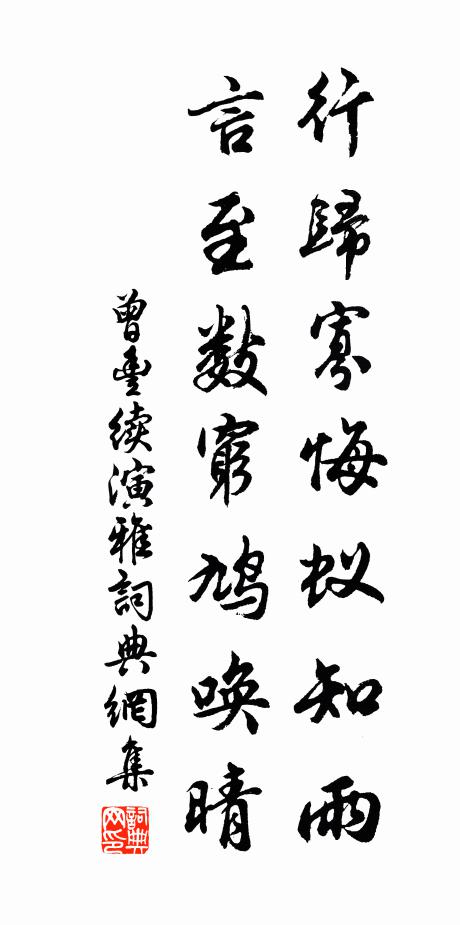 行歸寡悔蚁知雨
言至數窮鳩唤晴
曾豊续演雅詞典網集
詞典网印